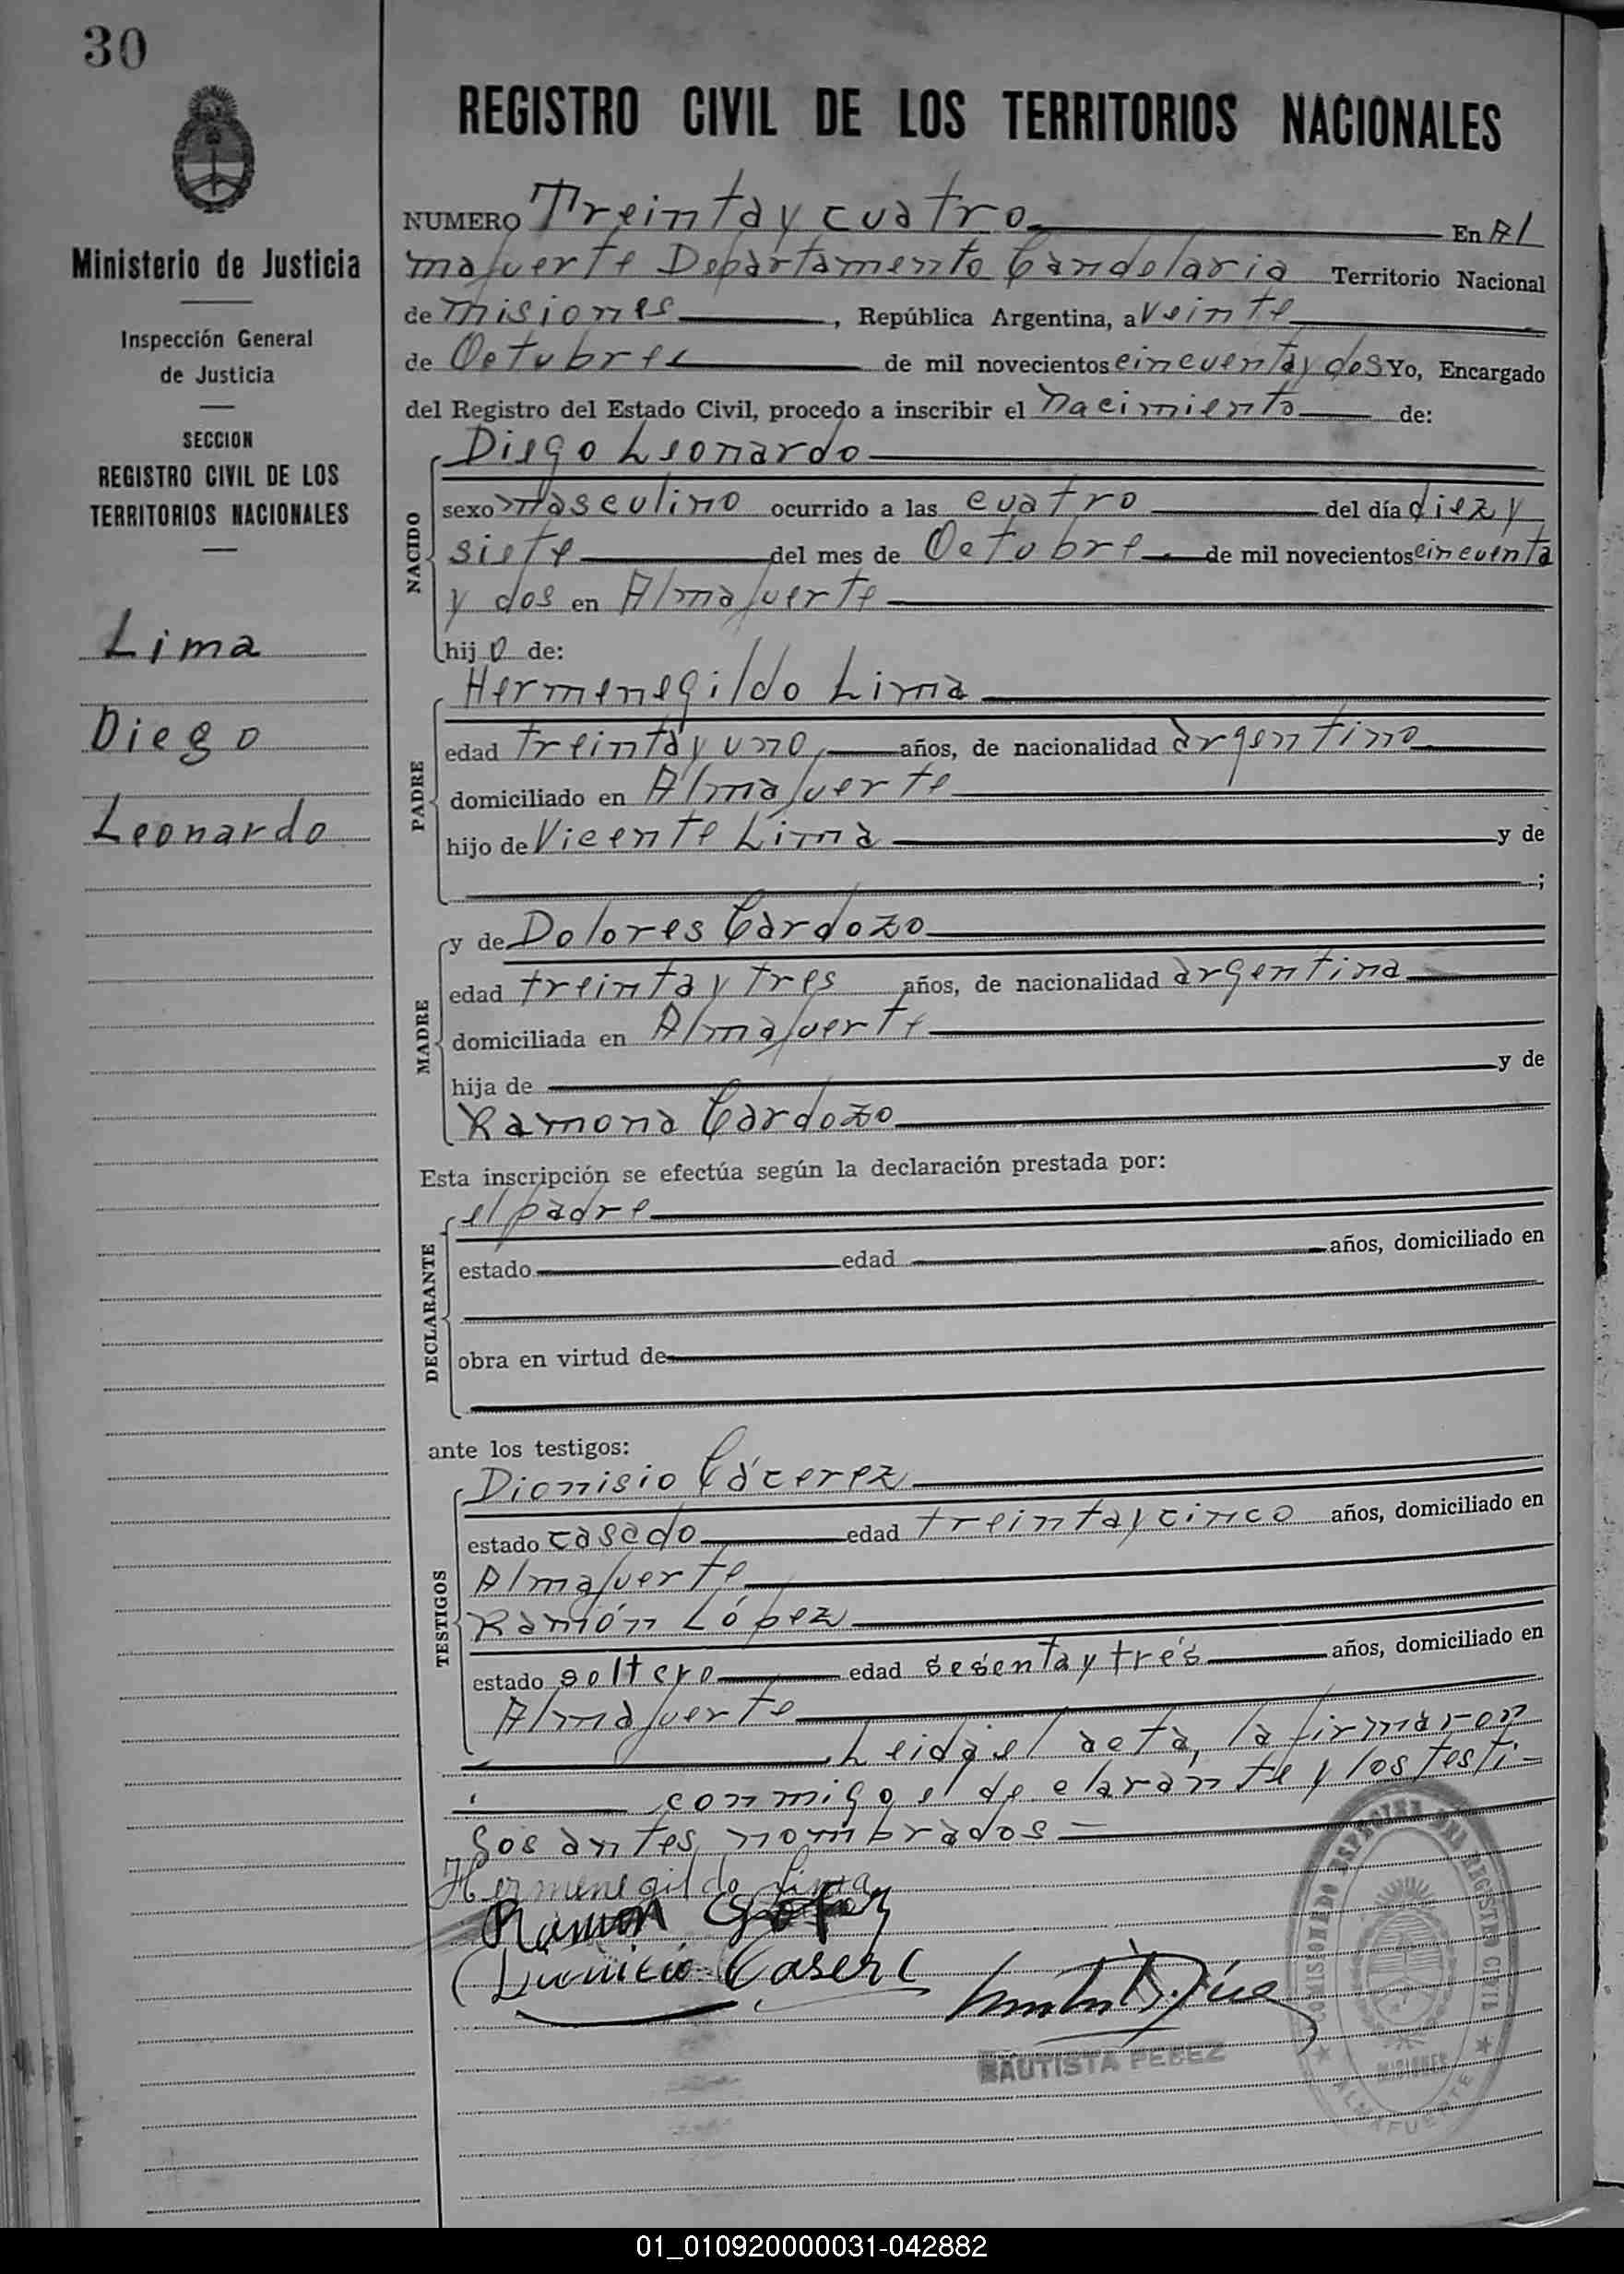 30
Ministerio de Justicia
Inspección General
de Justicia
SECCION
REGISTRO CIVIL DE LOS
TERRITORIOS NACIONALES
Lima
Diego
Leonardo
REGISTRO CIVIL DE LOS TERRITORIOS NACIONALES
NUMERO Treinta y cuatro En Al
mafuerte Departamento Candelaria Territorio Nacional
de Misiones, República Argentina, a veinte
de Octubre de mil novecientos cincuenta y dos Yo, Encargado
del Registro del Estado Civil, procedo a inscribir el nacimiento de:
NACIDO
Diego Leonardo
sexo masculino ocurrido a las cuatro del día diez y
siete del mes de Octubre de mil novecientos cincuenta
y dos en Almafuerte
hijo de:
PADRE
Hermenegildo Lima
edad treinta y uno años, de nacionalidad argentino
domiciliado en Almafuerte
hijo de Vicente Lima y de
;
MADRE
y de Dolores Cardozo
edad treinta y tres años, de nacionalidad argentina
domiciliada en Almafuerte
hija de y de
Ramona Cardozo
Esta inscripción se efectúa según la declaración prestada por:
DECLARANTE
el padre
estado edad años, domiciliado en
obra en virtud de
ante los testigos:
TESTIGOS
Dionisio Cácerez
estado casado edad treinta y cinco años, domiciliado en
Almafuerte
Ramón López
estado soltero edad sesenta y trés años, domiciliado en
Almafuerte
Leida el acta, la firmaron
conmigo el declarante y los testi-
gos antes nombrados=
Hermenegildo Lima
Ramon
BAUTISTA PEREZ
COMISIONADO ESPECIAL DEL REGISTRO CIVIL
MISIONES
ALMAFUERTE
01_010920000031-042882